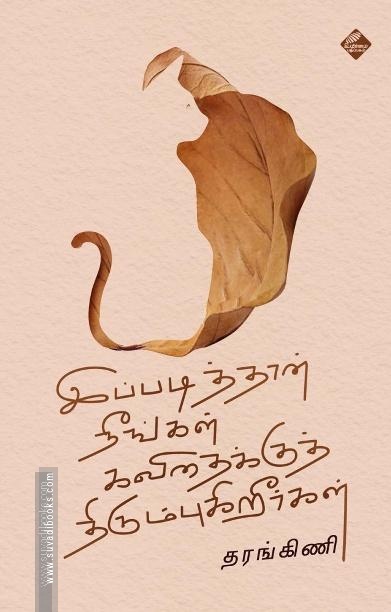 இப்படித்தான்
நீங்கள்
கவிதைக்குத்
திரும்புகிறீர்கள்
தரங்கிணி
www.suvadibooks.com